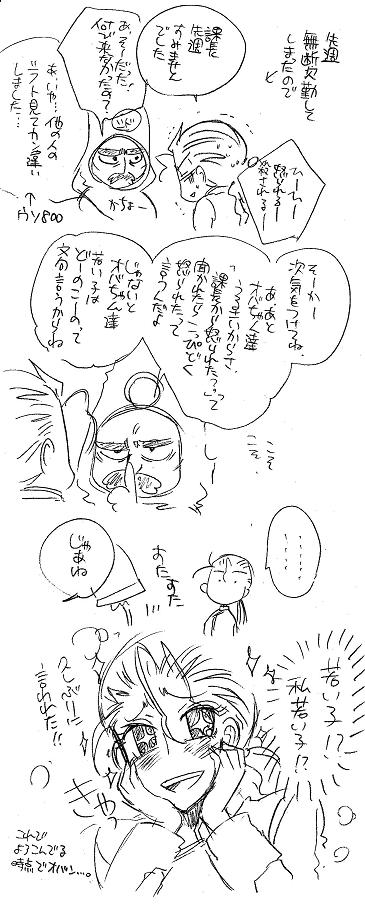 先週
無断欠勤して
しまたので
と
課長
先週
すみません
でした
あ、そーだった!
何で来なかったの?
(いかり)
あ、いや…他の人の
シフト見てカン違い
しました…
↑
ウソ800
かちょー
ひー
怒られるー
殺されるー
そーかー
次気をつけてね
あ、あと
オバちゃん達
うるさいからさ、
「課長から怒られた?」って
聞かれたら「こっぴどく
怒られた」って
言うんだよ
じゃないと
オバちゃん達
若い子は
どーのこーのって
文句言うからね
こそ
こそ
・・・・・・
すたすた
じゃあね
若い子!?
私若い子!?
久しぶりに
言われた!!
きゃっ
こんで
よろこんでる
時点でオバン…。